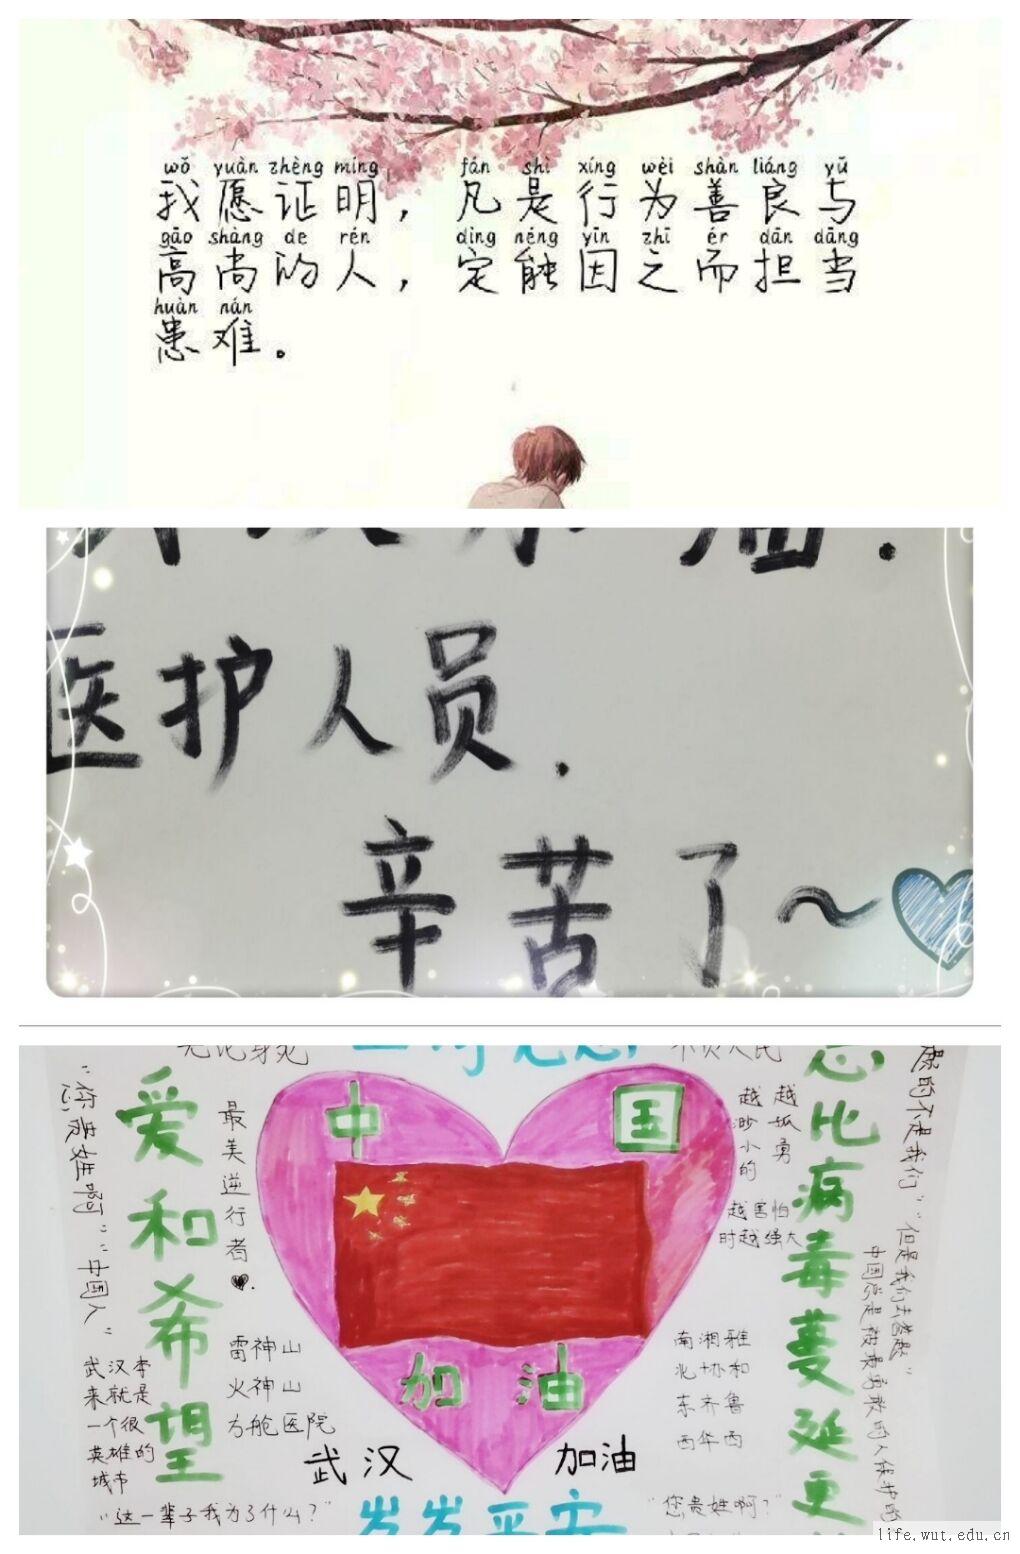 wǒ yuàn zhèng míng fán shì xíng wèi shàn liáng yǔ
我愿证明，凡是行为善良与
gāo shàng de rén dìng néng yīn zhī ér dān dāng
高尚的人，定能因之而担当
huàn nán
患难。
医护人员.
辛苦了～
爱和希望
最美逆行者
中国
加油
"您贵姓啊""中国人"
武汉本
来就是
一个很
英雄的
城市
雷神山
火神山
方舱医院
武汉 加油
"这一辈子我为了什么?"
岁岁平安
越渺小的
越孤勇
越害怕
时越强大
南湘雅
北协和
东齐鲁
西华西
"您贵姓啊?"
比病毒蔓延更
的不是我们"
中国总是被最勇敢的人保护的
life.wut.edu.cn